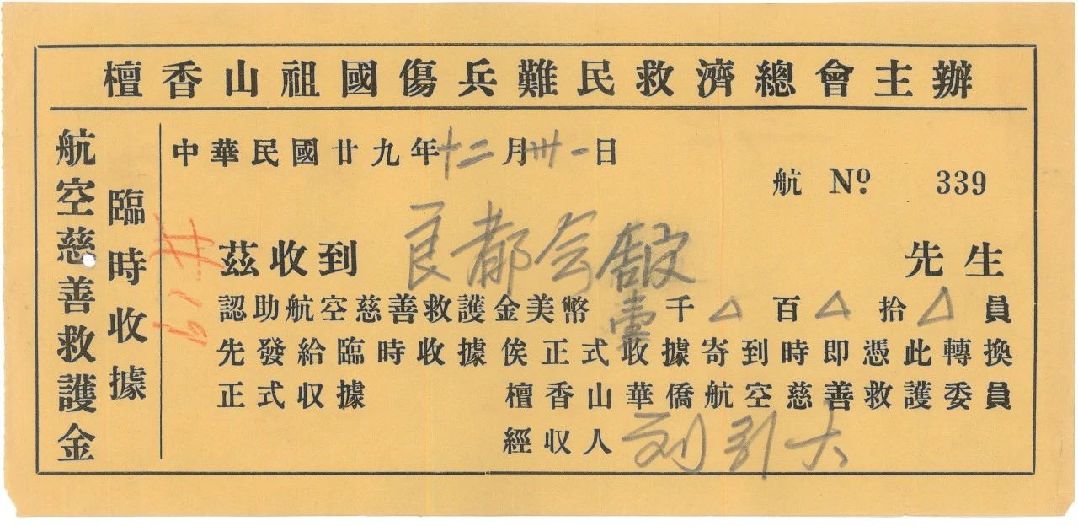 檀香山祖國傷兵難民救濟總會主辦
航空慈善救護金
臨時收據
中華民國廿九年十二月卅一日
航 Nº 339
茲收到 良都会館 先生
認助航空慈善救護金美幣壹千△百△拾△員
先發給臨時收據俟正式收據寄到時即憑此轉換
正式收據 檀香山華僑航空慈善救護委員
經收人 刘引大